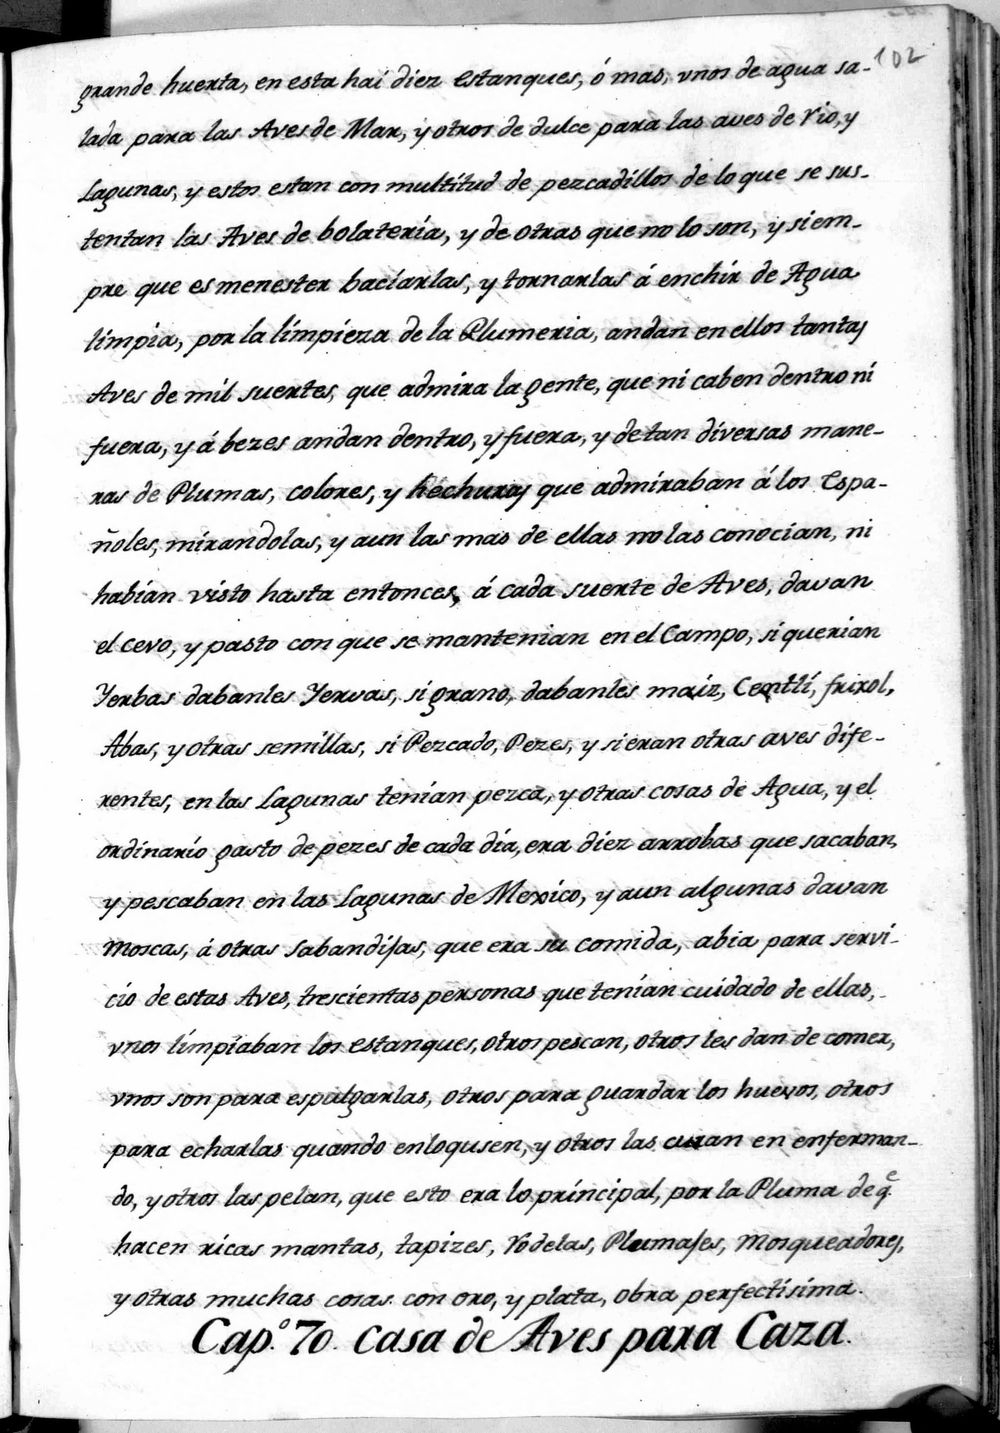 102
grande huerta, en esta hai diez estanques, ó mas, vnos de agua sa-
lada para las Aves de Mar, y otros de dulce para las aves de rio, y
Lagunas, y estos estan con multitud de pezcadillos de lo que se sus-
tentan las Aves de bolatería, y de otras que no lo son, y siem-
pre que es menester baciarlas, y tornarlas á enchir de Agua
limpia, por la limpieza de la Plumeria, andan en ellos tantas
Aves de mil suertes, que admira la gente, que ni caben dentro ni
fuera, y á bezes andan dentro, y fuera, y de tan diversas mane-
ras de Plumas, colores, y hechuras que admiraban á los Espa-
ñoles, mirandolas, y aun las mas de ellas no las conocian, ni
habian visto hasta entonces, á cada suerte de Aves, davan
el cevo, y pasto con que se mantenian en el Campo, si querian
Yerbas dabanles Yervas, si grano, dabanles maiz, Centli, frixol,
Abas, y otras semillas, si Pezcado, Pezes, y si eran otras aves dife-
rentes, en las Lagunas tenian pezca, y otras cosas de Agua, y el
ordinario gasto de pezes de cada dia, era diez arrobas que sacaban,
y pescaban en las Lagunas de Mexico, y aun algunas davan
Moscas, á otras sabandijas, que era su comida, abia para servi-
cio de estas Aves, trescientas personas que tenían cuidado de ellas,
vnos limpiaban los estanques, otros pescan, otros les dan de comer,
vnos son para espulgarlas, otros para guardar los huevos, otros
para echarlas quando enloqusen, y otros las curan en enferman-
do, y otros las pelan, que esto era lo principal, por la Pluma de q.e
hacen ricas mantas, tapizes, rodelas, Plumajes, Mosqueadores,
y otras muchas cosas con oro, y plata, obra perfectisima.
Cap.º 70. Casa de Aves para Caza.